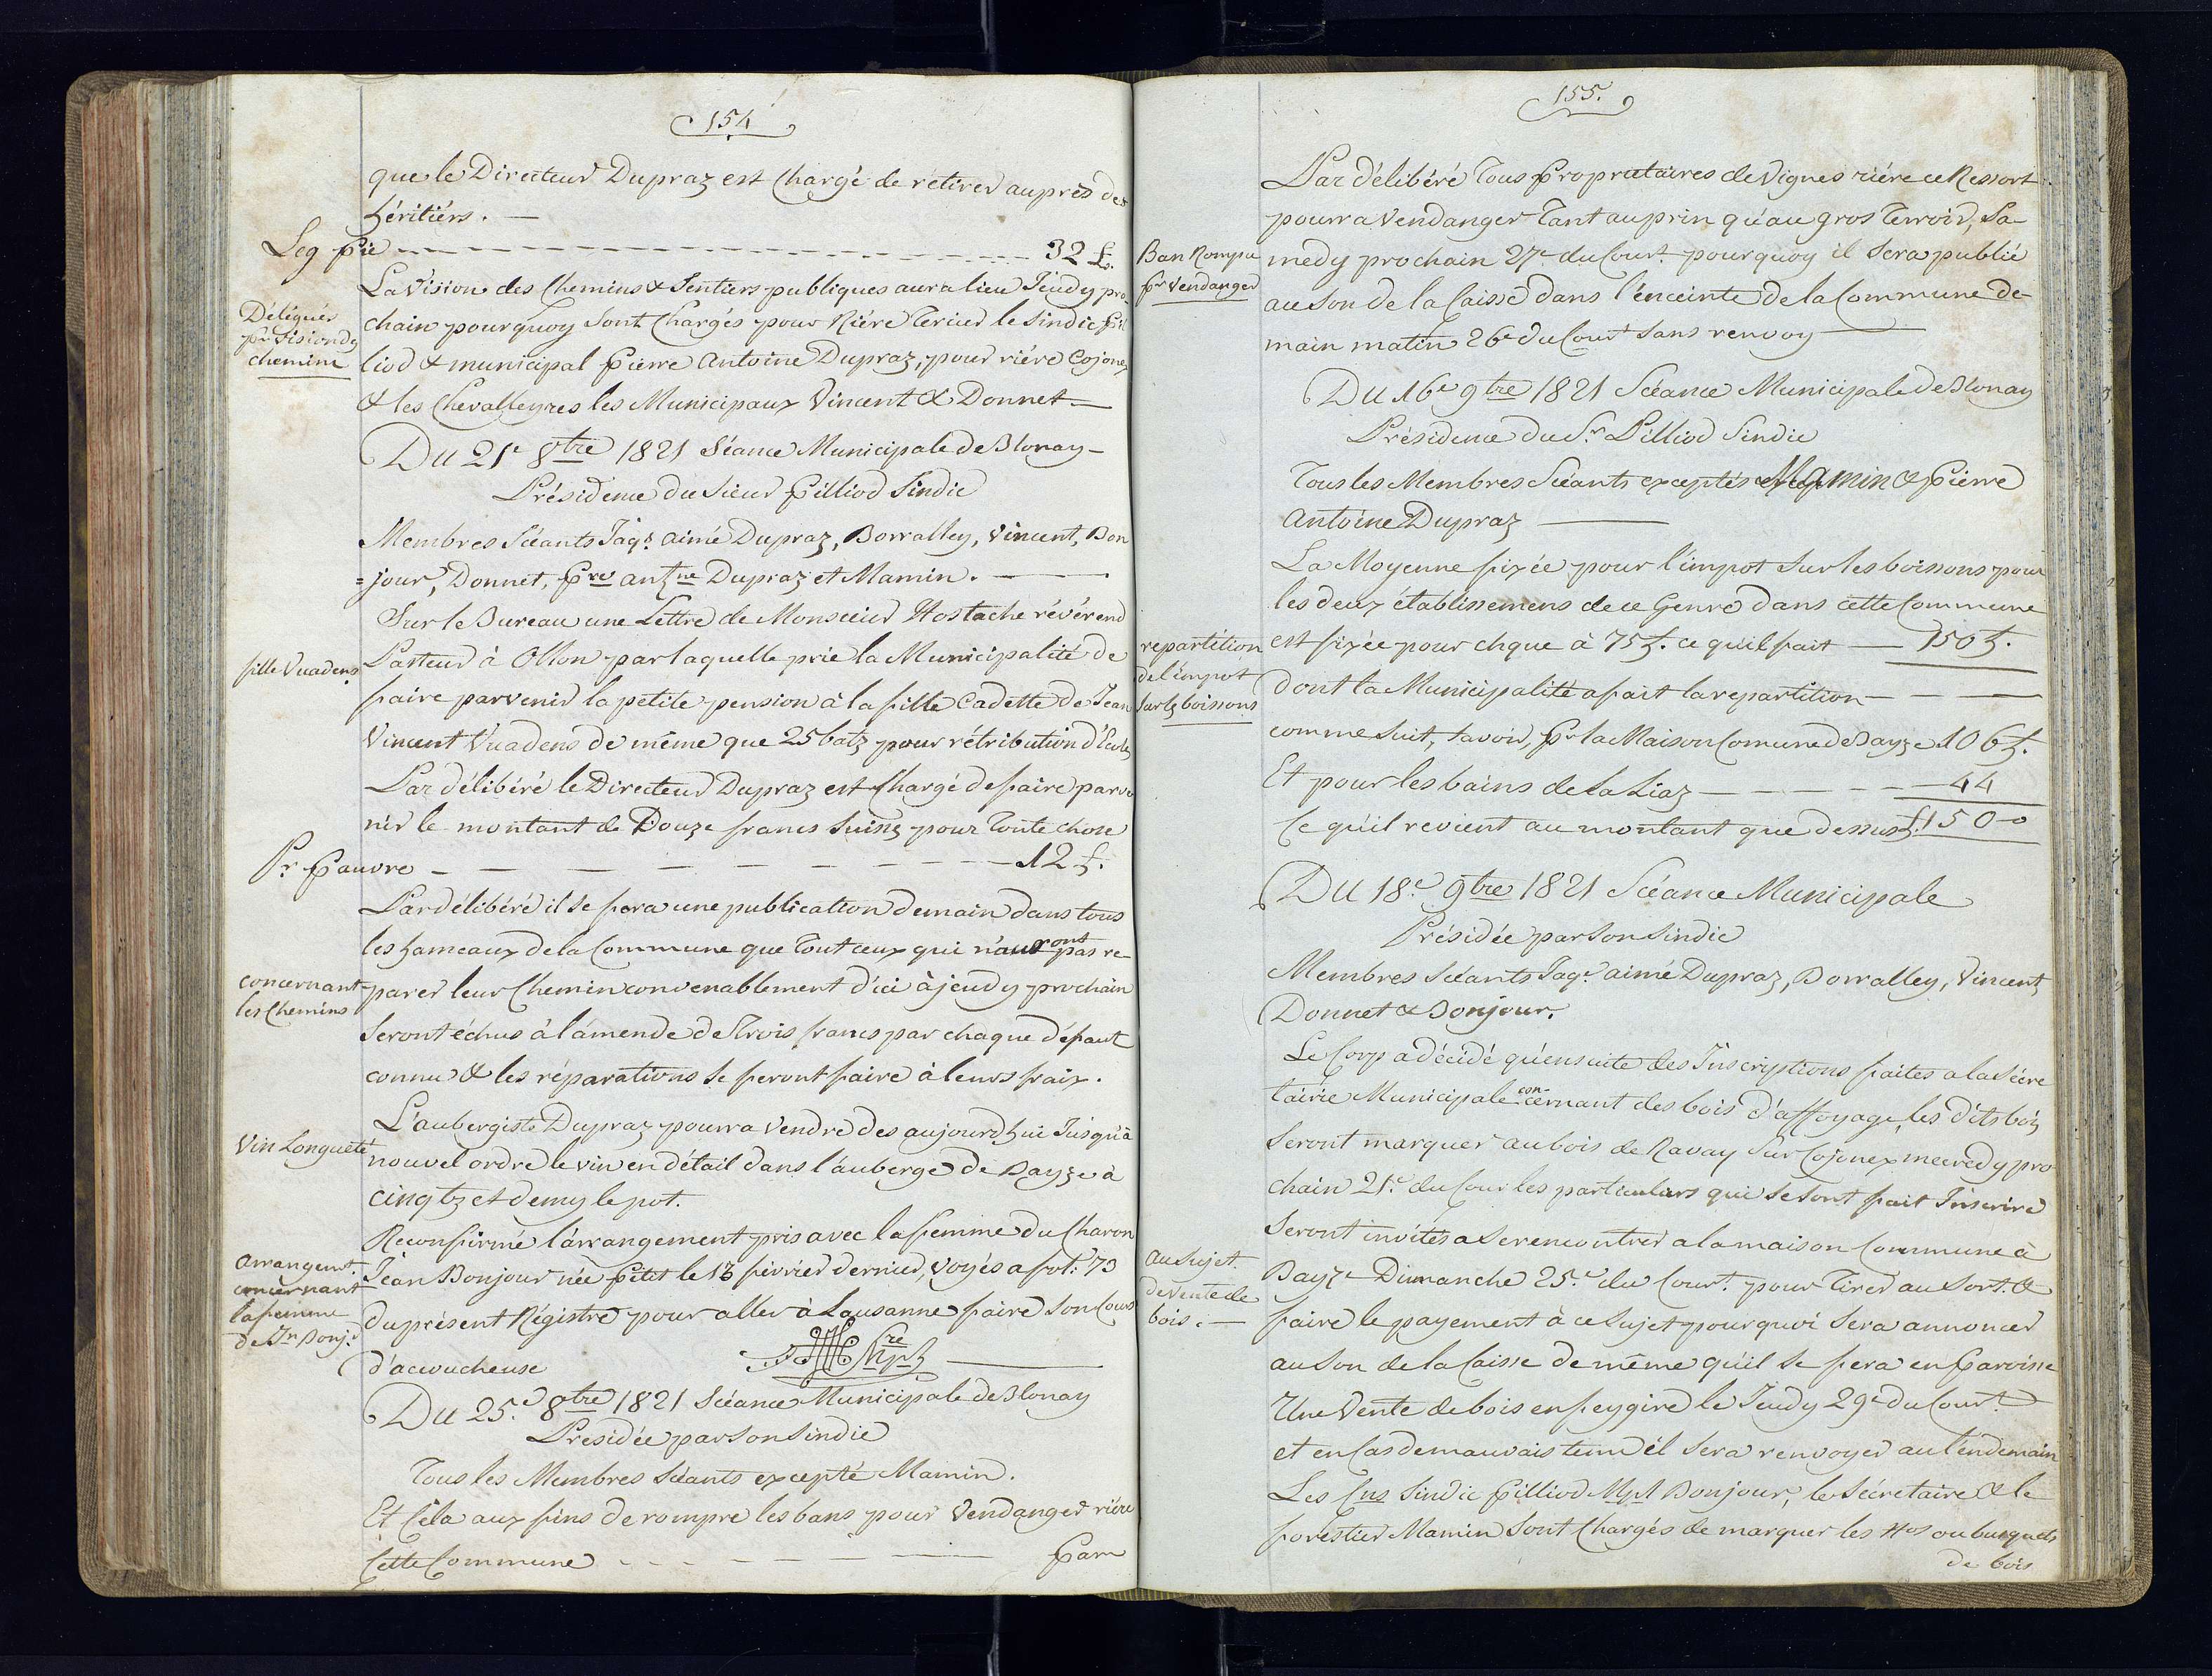 154
que le Directeur Dupraz est Chargé de retirer auprès des
héritiérs. —
Leg pie 32 £.
La Vision des Chemins & Sentiers publiques aura lieu Jeudy pro
Délégués
pr Vision dz
chemins
chain pourquoy Sont Chargés pour Riére Tercier le Sindic Pil
liod & municipal Pierre Antoine Dupraz, pour riére Cojonex
& les Chevalleyres les Municipaux Vincent & Donnet —
Du 21e 8tre 1821 Séance Municipale de Blonay —
Présidence du Sieur Pilliod Sindic
Membres Séants Jaqs aimé Dupraz, Borralley, Vincent, Bon
=jour, Donnet, Pre antne Dupraz et Mamin. —
Sur le Bureau une Lettre de Monsieur Hostache révérend
fille Vuadens
Pasteur à Ollon par laquelle prie la Municipalité de
faire parvenir la petite pension à la fille Cadette de Jean
Vincent Vuadens de même que 25 batz pour rétribution d'Ecole
Par délibéré le Directeur Dupraz est Chargé de faire parve
nir le montant de Douze francs Suiss pour Toute chose
Pr Pauvre 12 £.
Par délibéré il se fera une publication demain dans tous
les hameaux de la Commune que Tout ceux qui n'auront pas re-
concernant
les Chemins
parer leur Chemin convenablement d'ici à jeudy prochain
Seront échus à l'amende de Trois francs par chaque défaut
connu & les réparations se feront faire à leurs fraix.
L'aubergiste Dupraz pourra Vendre des aujourdhui Jusqu'à
Vin Longuetté
nouvel ordre le vin en détail dans l'auberge de Bayze à
cinq bz et demy le pot.
Reconfirmé l'arrangement pris avec la femme du Charon
Arrangemt.
concernant
la femme
de Jn Bonjr
Jean Bonjour née Petet le 13 février dernier, Voyés a fol: 73
du présent Régistre pour aller à Lausanne faire Son Cours
d'accoucheuse
Du 25e 8tre 1821 Séance Municipale de Blonay
Présidée par Son Sindic
Tous les Membres Séants excepté Mamin.
Et Cela aux fins de rompre les bans pour Vendanger riére
Cette Commune Par
155.
Par délibéré Tous Proprietaires de Vignes riére ce Ressort
pourra Vendanger Tant au prin qu'au gros Terroir, Sa-
Ban Rompu
pr Vendanger
medy prochain 27e du Court. pourquoy il Sera publié
au Son de la Caisse dans l'enceinte de la Commune de-
main matin 26e du Court Sans renvoy —
Du 16e 9tre 1821 Séance Municipale de Blonay
Présidence du Sr Pilliod Sindic
Tous les Membres Séants exceptés Mamin & Pierre
Antoine Dupraz —
La Moyenne fixée pour l'impot Sur les boissons pour
les deux établissemens de ce Genre dans cette Commune
repartition
de l'impot
Sur lz boissons
est fixée pour chque à 75 £. ce qu'il fait — 150 £.
dont la Municipalité a fait la repartition —
comme Suit, Savoir, Pr la Maison Comune de Bayze 106 £.
Et pour les bains de la Liaz — 44
Ce qu'il revient au montant que dessus £ 150 —
Du 18e 9tre 1821 Séance Municipale
Présidée par Son Sindic
Membres Séants Jaqs aimé Dupraz, Borralley, Vincent
Donnet & Bonjour.
Le Corp a décidé qu'ensuite des Inscriptions faites a la Sécre
tairie Municipale concernant des bois d'affoyage, les dits boiz
Seront marquer au bois de Ravay Sur Cojonex mecredy pro
chain 21e du Cour les particulars qui Se Sont fait Inscrire
Seront invités a Se rencontrer a la maison Commune à
Au Sujet
de Vente de
bois. —
Bayze Dimanche 25e du Court. pour Tirer au Sort. &
faire le payement à ce Sujet pourquoi Sera annoncer
au Son de la Caisse de même qu'il Se fera en Paroisse
Une Vente de bois en feygire le Jeudy 29e du Court.
et en Cas de mauvais tems il Sera renvoyer au lendemain
Les Cns Sindic Pilliod Mpl Bonjour, le Sécretaire & le
forestier Mamin Sont Chargés de marquer les Nos ou busquets
de bois